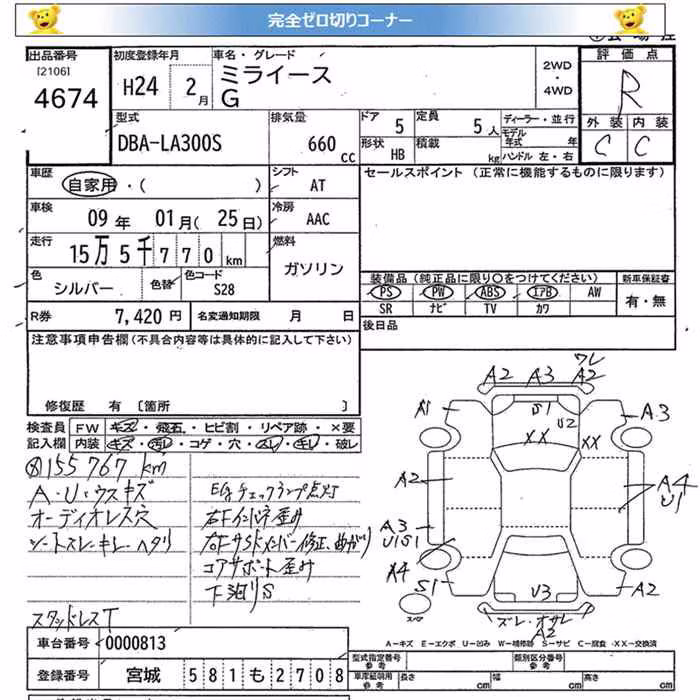 完全ゼロ切りコーナー
出品番号 [2106] 4674
初度登録年月 H24 2月
車名・グレード ミライース G
2WD ・ 4WD
評価点 R
外装 内装
C C
型式 DBA-LA300S
排気量 660 cc
ドア 5
定員 5人
形状 HB
積載 kg
ディーラー・並行
モデル年式 年
ハンドル 左・右
車歴 自家用・( )
シフト AT
セールスポイント (正常に機能するものに限ります)
車検 09年 01月(25日)
冷房 AAC
走行 15万5千770km
燃料 ガソリン
色 シルバー 色替 色コード S28
装備品 (純正品に限り○をつけてください) 新車保証書
PS PW ABS エアB AW 有・無
SR ナビ TV カワ
R券 7,420円 名変通知期限 月 日
後日品
注意事項申告欄(不具合内容等は具体的に記入して下さい)
修復歴 有 〔箇所 〕
検査員 FW キズ・飛石・ヒビ割・リペア跡・×要
記入欄 内装 キズ・汚れ・コゲ・穴・スレ・キレ・破レ
155767km
A・U・ウスキズ
オーディオレス穴
シートスレ・キレ・ヘタリ
スタッドレスT
Egチェックランプ点灯
右Fインパネ歪み
右Fサイドメンバー修正、曲がり
コアサポート歪み
下泊りS
ワレ
A2 A3 A2
A1 U1 U2 A3
XX XX
A2 A4 U1
A3 U1S1
A4
S1 U3 A2
スペア
ズレ・オサレ
A2
A-キズ E-エクボ U-凹み W-補修跡 S-サビ C-腐食 -XX-交換済
車台番号 0000813
登録番号 宮城 581も2708
型式指定番号 参考 類別区分番号
車庫証明参考 長さ cm 幅 cm 高さ cm